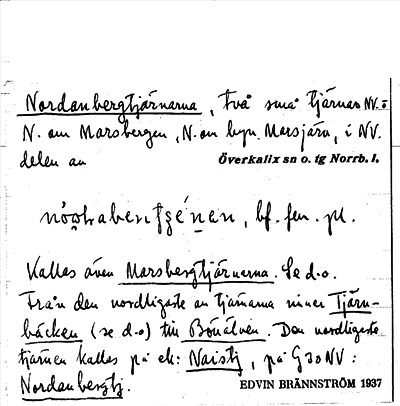 Nordanbergtjärnarna, två små tjärnar NV. o
N. om Marsbergen, N. om byn Marsjärv, i NV.
delen av Överkalix sn o. tg Norrb. l.
bf. fen. pl.
Kallas även Marsbergtjärnarna. Se d.o.
Från den nordligaste av tjärnarna rinner Tjärn-
bäcken (se d.o) till Bönälven. Den nordligaste
tjärnen kallas på ek: Naistj, på G30NV:
Nordanbergtj.
EDVIN BRÄNNSTRÖM 1937